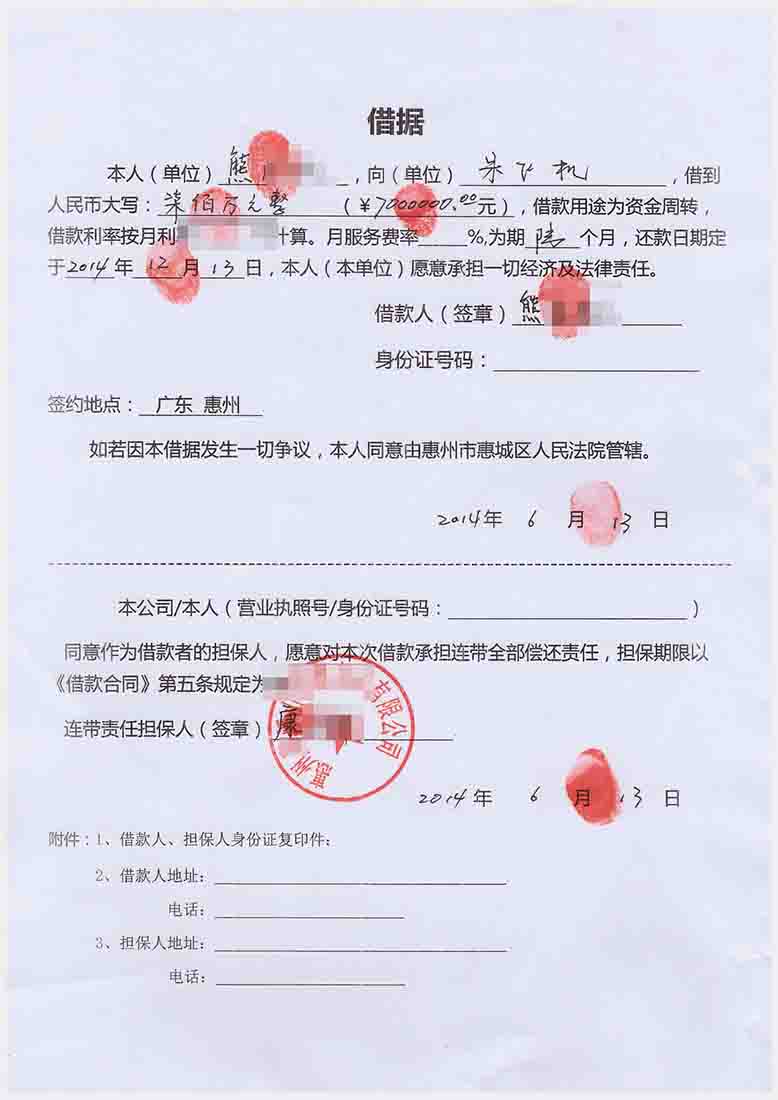 借据
本人（单位）熊，向（单位）朱飞机，借到
人民币大写：柒佰万元整（￥7000000.00元），借款用途为资金周转，
借款利率按月利计算。月服务费率_____%,为期陆个月，还款日期定
于2014年12月13日，本人（本单位）愿意承担一切经济及法律责任。
借款人（签章）熊
身份证号码：
签约地点：广东 惠州
如若因本借据发生一切争议，本人同意由惠州市惠城区人民法院管辖。
2014年 6 月 13 日
本公司/本人（营业执照号/身份证号码：）
同意作为借款者的担保人，愿意对本次借款承担连带全部偿还责任，担保期限以
《借款合同》第五条规定为
连带责任担保人（签章）康
惠州 有限公司
2014年 6 月 13 日
附件：1、借款人、担保人身份证复印件；
2、借款人地址：
电话：
3、担保人地址：
电话：